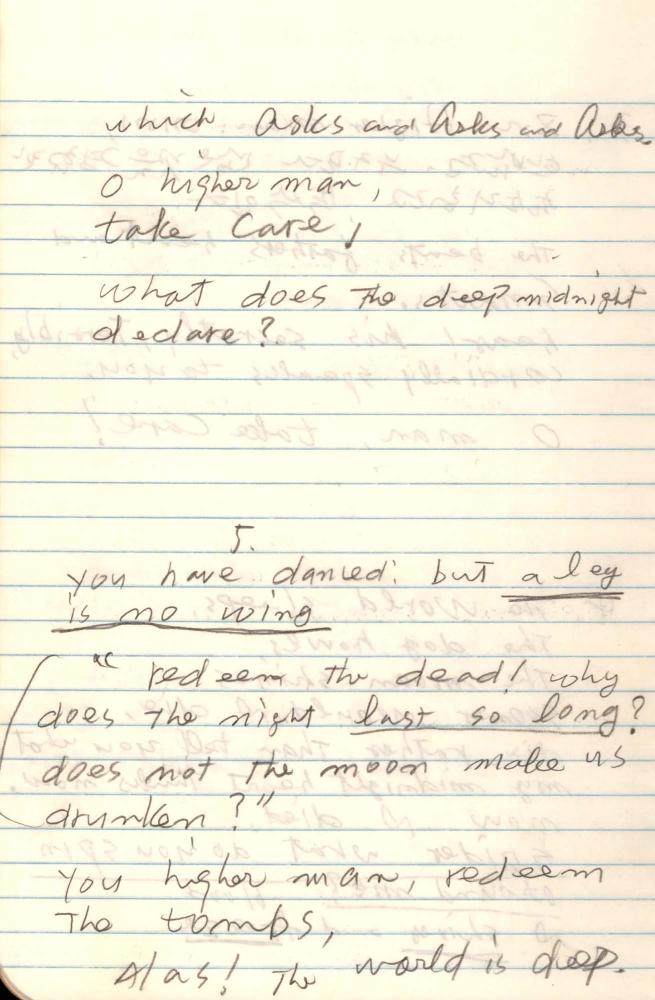 which asks and Asks and Asks.
O higher man,
take care!
what does the deep midnight
declare?
5.
you have danced: but a leg
is no wing
"redeem the dead! why
does the night last so long?
does not the moon make us
drunken?"
You higher man, redeem
The tombs,
Alas! The world is deep.